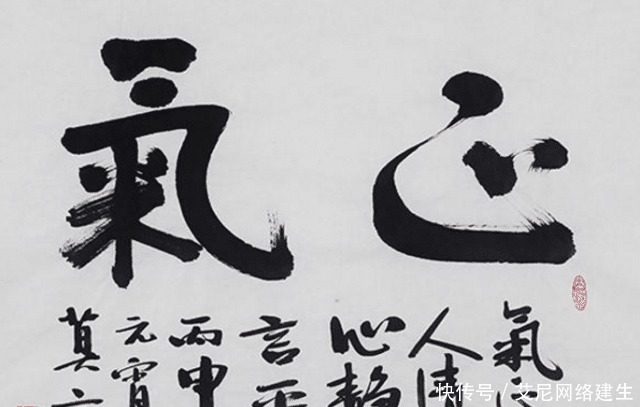 正氣
氣
人清
心静
言
丙申
元宵
莫
快传号/艾尼网络建生